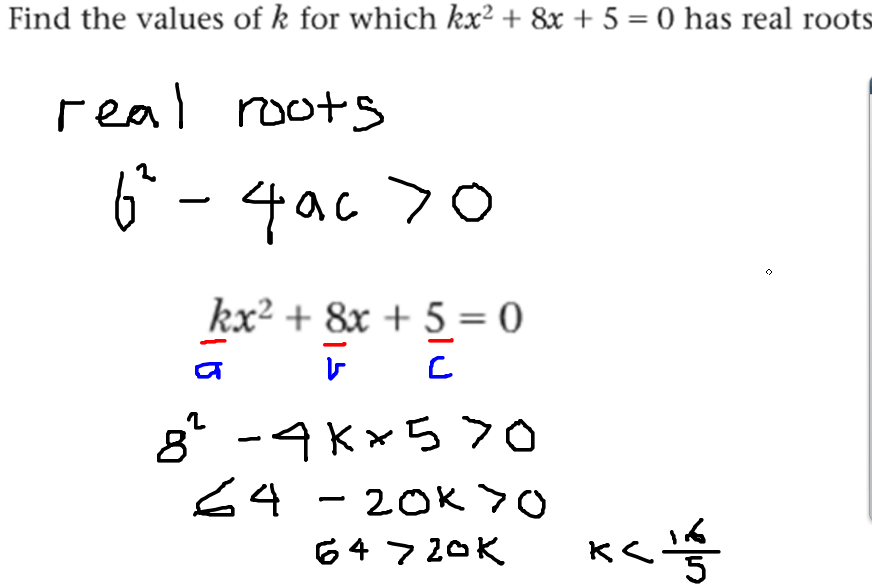 Find the values of k for which kx² + 8x + 5 = 0 has real roots
real roots
b² - 4ac > 0
kx² + 8x + 5 = 0
a b c
8² - 4k × 5 > 0
64 - 20k > 0
64 > 20k k < 16/5